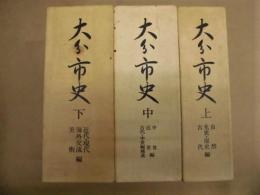 大分市史
上
自然
先史・原史 編
古代
大分市史
中
中世
近世 編
大分市史
下
近代・現代
海外交流 編
美術